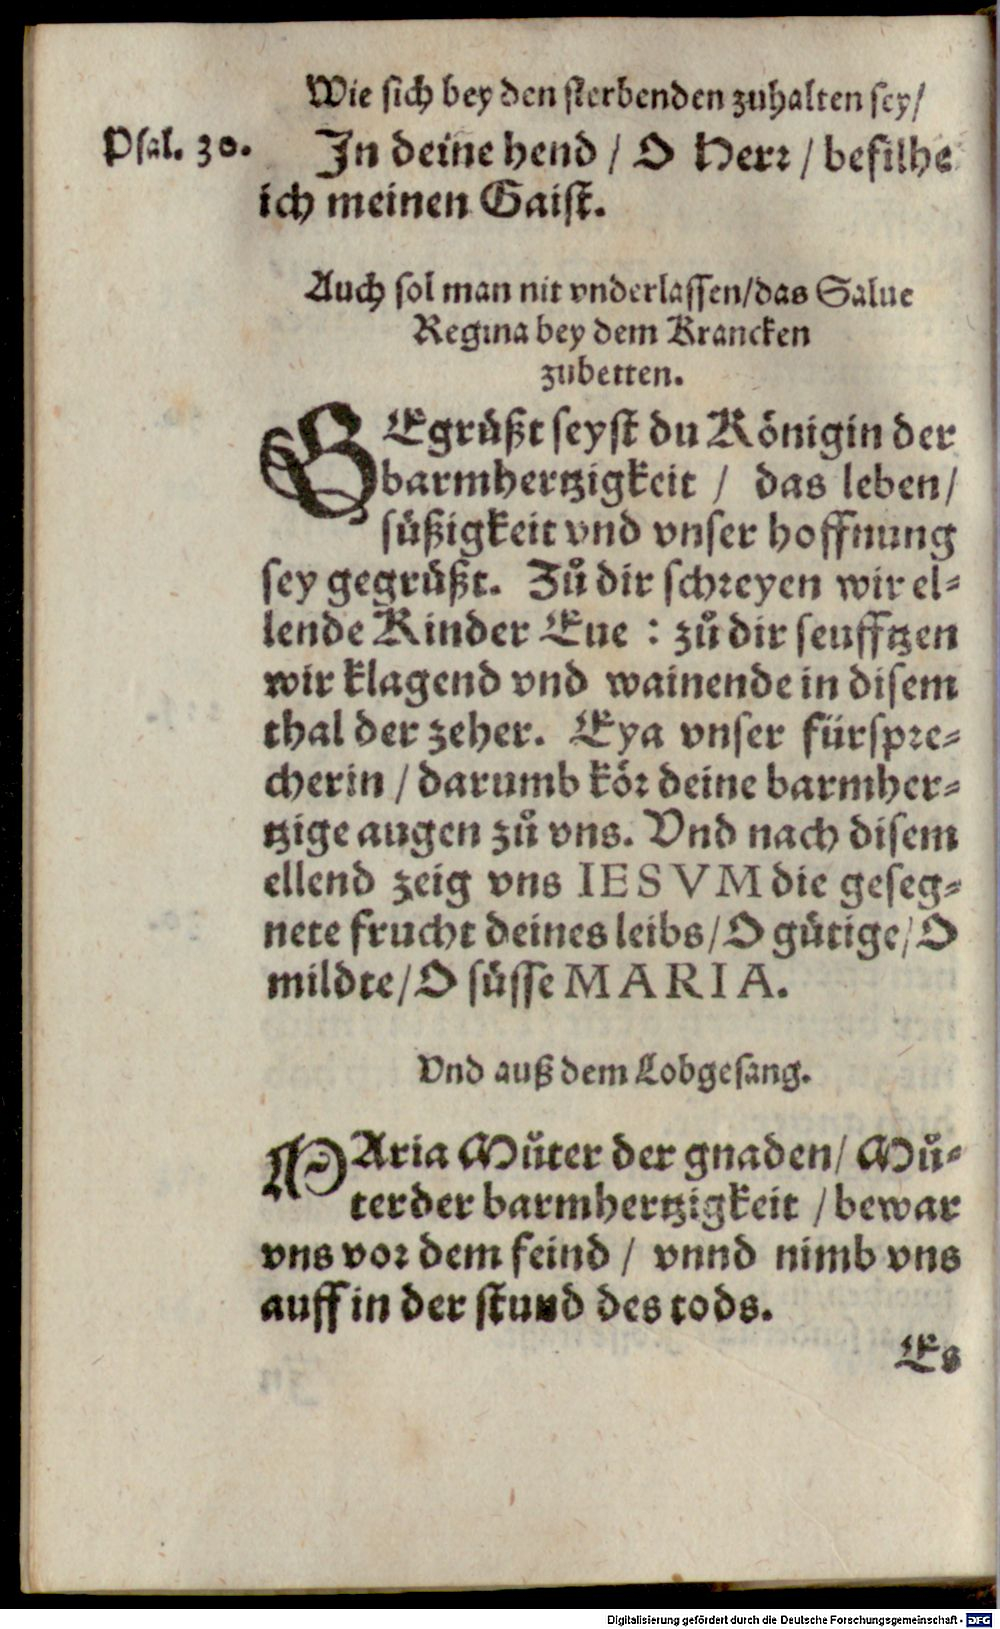 Wie sich bey den sterbenden zuhalten sey/
Psal. 30.
In deine hend / O Herr / befilhe
ich meinen Gaist.
Auch sol man nit vnderlassen/das Salue
Regina bey dem Krancken
zubetten.
GEgrüßt seyst du Königin der
barmhertzigkeit / das leben/
süßigkeit vnd vnser hoffnung
sey gegrüßt. Zů dir schreyen wir el-
lende Kinder Eue : zů dir seufftzen
wir klagend vnd wainende in disem
thal der zeher. Eya vnser fürspre-
cherin / darumb kör deine barmher-
tzige augen zů vns. Vnd nach disem
ellend zeig vns IESVM die geseg-
nete frucht deines leibs/O gütige/O
mildte/O süsse MARIA.
Vnd auß dem Lobgesang.
MAria Můter der gnaden/ Mů-
ter der barmhertzigkeit / bewar
vns vor dem feind / vnnd nimb vns
auff in der stund des tods.
Es
Digitalisierung gefördert durch die Deutsche Forschungsgemeinschaft - DFG